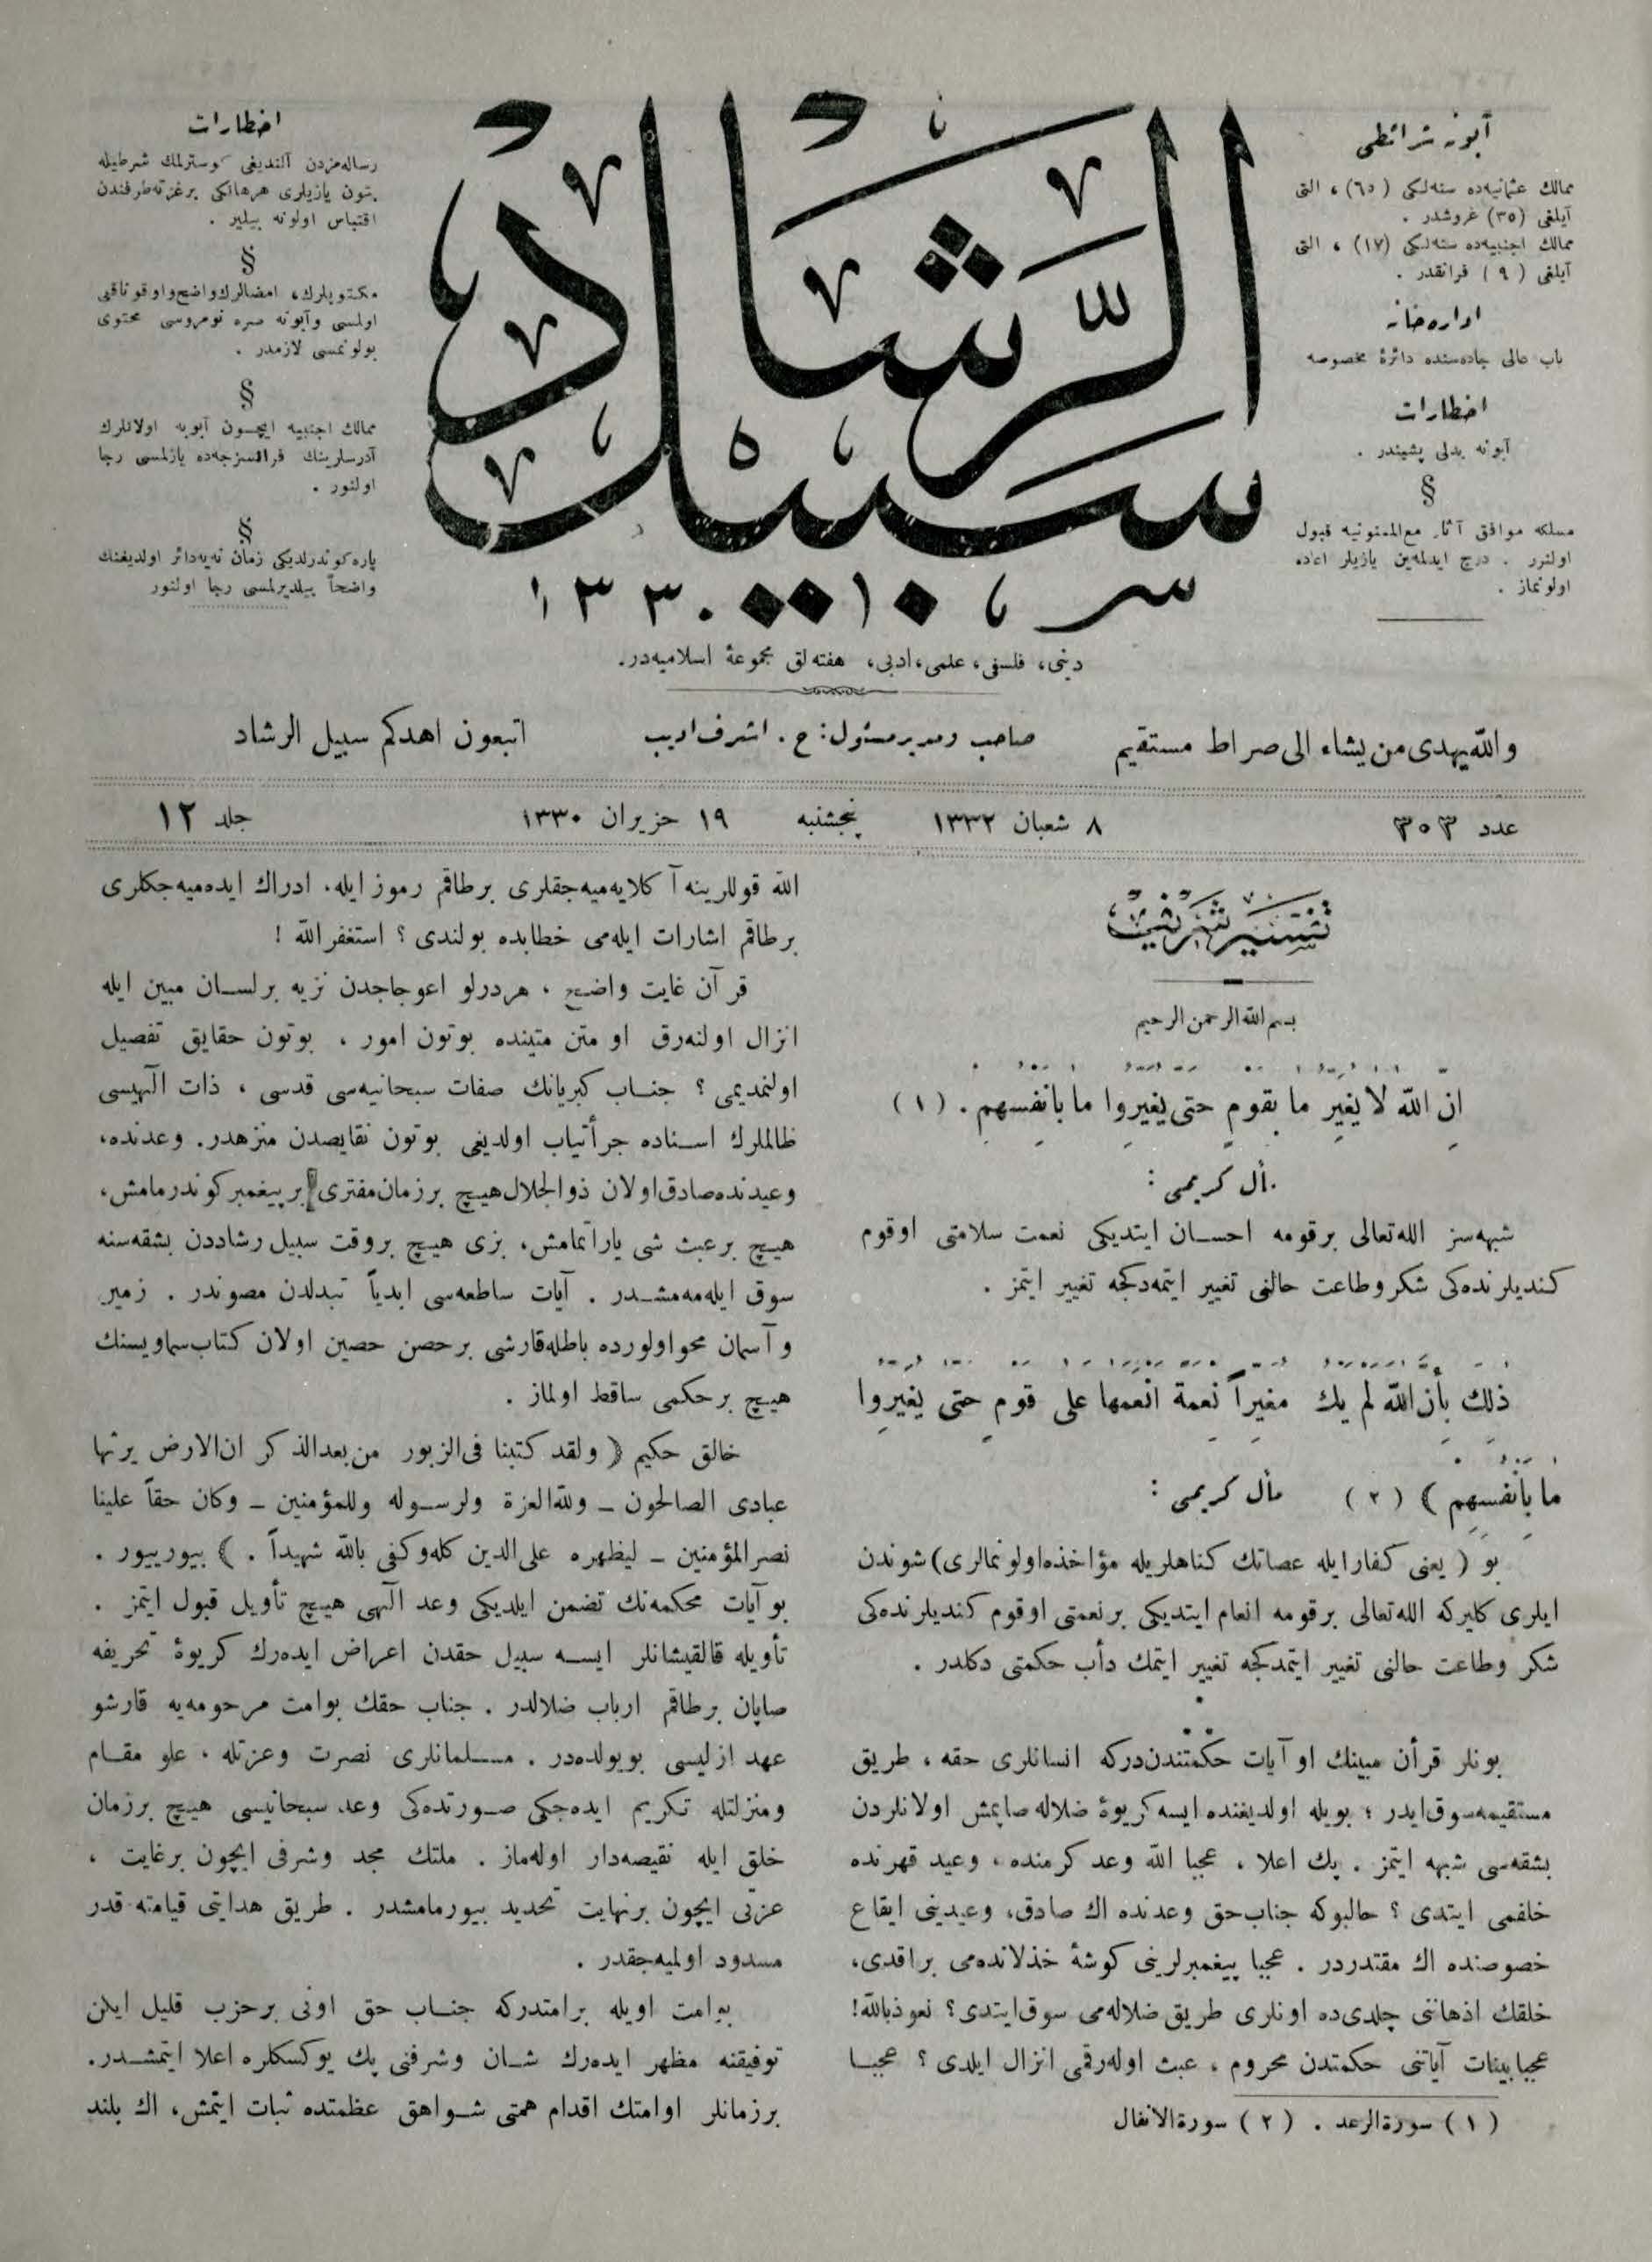 آبونه شرائطی
ممالك عثمانیه‌ده سنه‌لكی (٦٥)، التی
آیلغی (٣٥) غروشدر .
ممالك اجنبیه‌ده سنه‌لكی (١٧)، التی
آیلغی (٩) فرانقدر .
اداره‌خانه
باب عالی جاده‌سنده دائرهٔ مخصوصه
اخطارات
آبونه بدلی پشیندر .
§
مسلكه موافق آثار مع‌الممنونیه قبول
اولنور . درج ایدلمه‌ین یازیلر اعاده
اولونماز .
سبیل الرّشاد
١٣٣٠
دینی، فلسفی، علمی، ادبی، هفته‌لق مجموعهٔ اسلامیه‌در.
اخطارات
رساله‌مزدن آلندیغی كوسترلمك شرطیله
بتون یازیلری هرهانكی برغزته طرفندن
اقتباس اولونه بیلیر .
§
مكتوبلرك، امضالرك واضح واوقوناقلی
اولمسی وآبونه صره نومروسی محتوی
بولونمسی لازمدر .
§
ممالك اجنبیه ایچون آبونه اولانلرك
آدرسلرینك فرانسزجه‌ده یازلمسی رجا
اولنور .
§
پاره كوندرلدیكی زمان نه‌یه‌دائر اولدیغنك
واضحاً بیلدیرلمسی رجا اولنور
والله یهدی من یشاء الی صراط مستقیم
صاحب ومدیر مسئول: ح . اشرف ادیب
اتبعون اهدكم سبیل الرشاد
عدد ٣٠٣
٨ شعبان ١٣٣٢ پنجشنبه ١٩ حزیران ١٣٣٠
جلد ١٢
تفسیر شریف
بسم الله الرحمن الرحیم
اِن الله لا یغیر ما بقوم حتی یغیروا ما بانفسهم . (١)
مأل كریمی :
شبهه‌سز الله تعالی برقومه احسان ایتدیكی نعمت سلامتی اوقوم
كندیلرنده‌كی شكر وطاعت حالنی تغییر ایتمه‌دكجه تغییر ایتمز .
ذلك بأن الله لم یك مغیراً نعمة انعمها علی قوم حتی یغیروا
ما بأنفسهم ﴾ (٢) مأل كریمی :
بو ( یعنی كفار ایله عصاتك كناهلریله مؤاخذه اولونمالری) شوندن
ایلری كلیركه الله تعالی برقومه انعام ایتدیكی برنعمتی اوقوم كندیلرنده‌كی
شكر وطاعت حالنی تغییر ایتمدكجه تغییر ایتمك دأب حكمتی دكلدر .
بونلر قرأن مبینك او آیات حكمتندن‌دركه انسانلری حقه، طریق
مستقیمه سوق ایدر ؛ بویله اولدیغنده ایسه كریوهٔ ضلاله صاپمش اولانلردن
بشقه‌سی شبهه ایتمز . پك اعلا ، عجبا الله وعد كرمنده، وعید قهرنده
خلفمی ایتدی ؟ حالبوكه جناب حق وعدنده اك صادق، وعیدینی ایقاع
خصوصنده اك مقتدردر . عجبا پیغمبرلرینی كوشهٔ خذلانده‌می براقدی،
خلقك اذهانی چلدی‌ده اونلری طریق ضلاله‌می سوق ایتدی ؟ نعوذ بالله!
عجبا بینات آیاتنی حكمتدن محروم ، عبث اوله‌رقمی انزال ایلدی ؟ عجبا
(١) سورة‌الرعد . (٢) سورة‌الانفال
الله قوللرینه آكلایه‌میه‌جقلری برطاقم رموز ایله، ادراك ایده‌میه‌جكلری
برطاقم اشارات ایله‌می خطابده بولندی ؟ استغفر الله !
قرآن غایت واضح ، هردرلو اعوجاجدن نزیه برلسان مبین ایله
انزال اولنه‌رق او متن متینده بوتون امور ، بوتون حقایق تفصیل
اولنمدیمی ؟ جناب كبریانك صفات سبحانیه‌سی قدسی ، ذات الهیسی
ظالملرك اسناده جرأتیاب اولدیغی بوتون نقایصدن منزهدر. وعدنده،
وعیدنده صادق اولان ذوالجلال هیچ برزمان مفتری برپیغمبر كوندرمامش،
هیچ برعبث شی یاراتمامش، بزی هیچ بروقت سبیل رشاددن بشقه‌سنه
سوق ایله‌مه‌مشدر . آیات ساطعه‌سی ابدیاً تبدلدن مصوندر . زمین
و آسمان محو اولورده باطله قارشی برحصن حصین اولان كتاب سماویسنك
هیچ برحكمی ساقط اولماز .
خالق حكیم ﴿ ولقد كتبنا فی‌الزبور من بعدالذكر ان‌الارض یرثها
عبادی الصالحون ــ ولله العزة ولرسوله وللمؤمنین ــ وكان حقاً علینا
نصرالمؤمنین ــ لیظهره علی‌الدین كله وكفی بالله شهیداً . ﴾ بیورییور .
بو آیات محكمه‌نك تضمن ایلدیكی وعد الهی هیچ تأویل قبول ایتمز .
تأویله قالقیشانلر ایسه سبیل حقدن اعراض ایده‌رك كریوهٔ تحریفه
صاپان برطاقم ارباب ضلالدر . جناب حقك بوامت مرحومه‌یه قارشو
عهد ازلیسی بویولده‌در . مسلمانلری نصرت وعزتله ، علو مقام
ومنزلتله تكریم ایده‌جكی صورتده‌كی وعد سبحانیسی هیچ برزمان
خلق ایله نقیصه‌دار اوله‌ماز . ملتك مجد وشرفی ایچون برغایت ،
عزتی ایچون برنهایت تحدید بیورمامشدر . طریق هدایتی قیامته قدر
مسدود اولمیه‌جقدر .
بوامت اویله برامتدركه جناب حق اونی برحزب قلیل ایكن
توفیقنه مظهر ایده‌رك شان وشرفنی پك یوكسكلره اعلا ایتمشدر.
برزمانلر اوامتك اقدام همتی شواهق عظمتده ثبات ایتمش، اك بلند